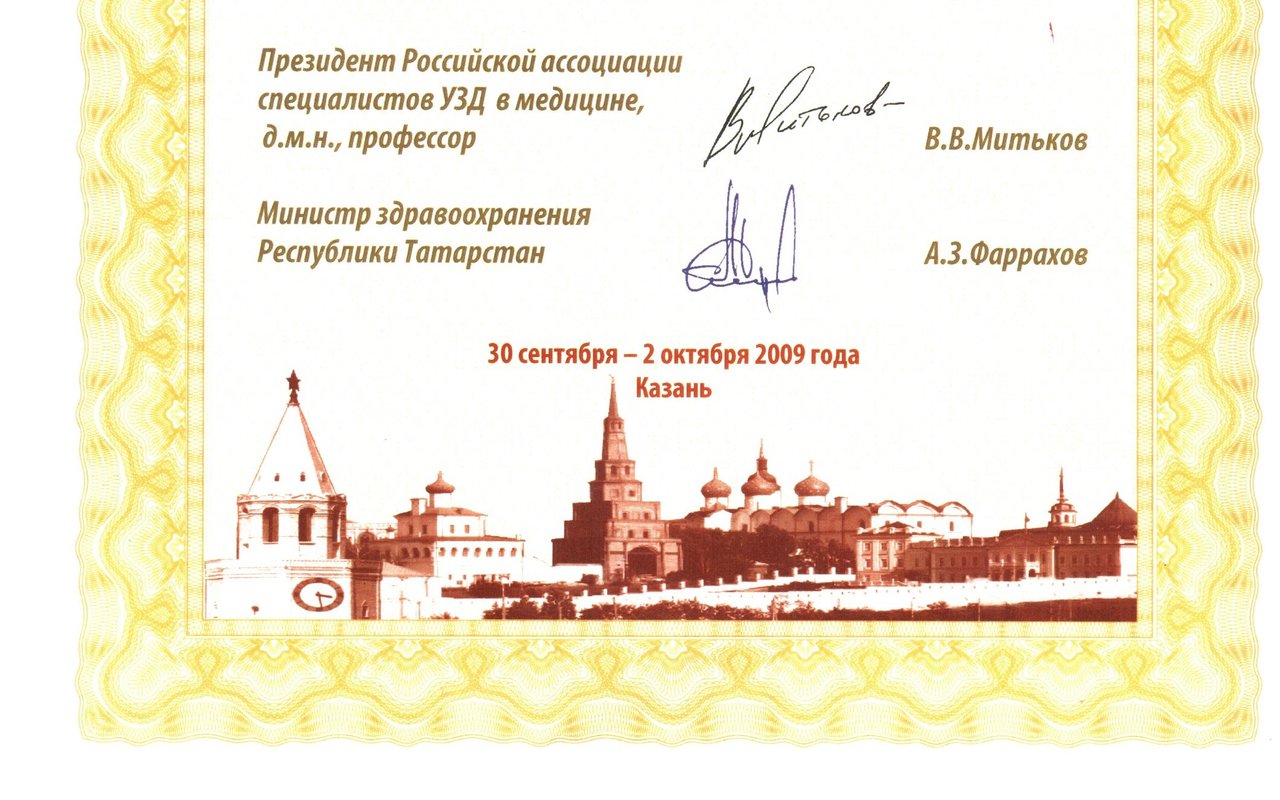 Президент Российской ассоциации
специалистов УЗД в медицине,
д.м.н., профессор
Витьков
В.В.Митьков
Министр здравоохранения
Республики Татарстан
А.З.Фаррахов
30 сентября – 2 октября 2009 года
Казань